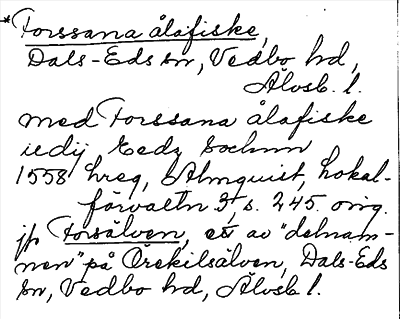 *Forssana ålafiske,
Dals-Eds sn, Vedbo hd,
Älvsb. l.
med Forssana ålafiske
udij Eedz Sochnn
1558 hreg, Almquist, Lokal-
förvaltn 3, s. 245. orig.
jfr Forsälven, ett av "delnam-
nen" på Örekilsälven, Dals-Eds
sn, Vedbo hd, Älvsb l.